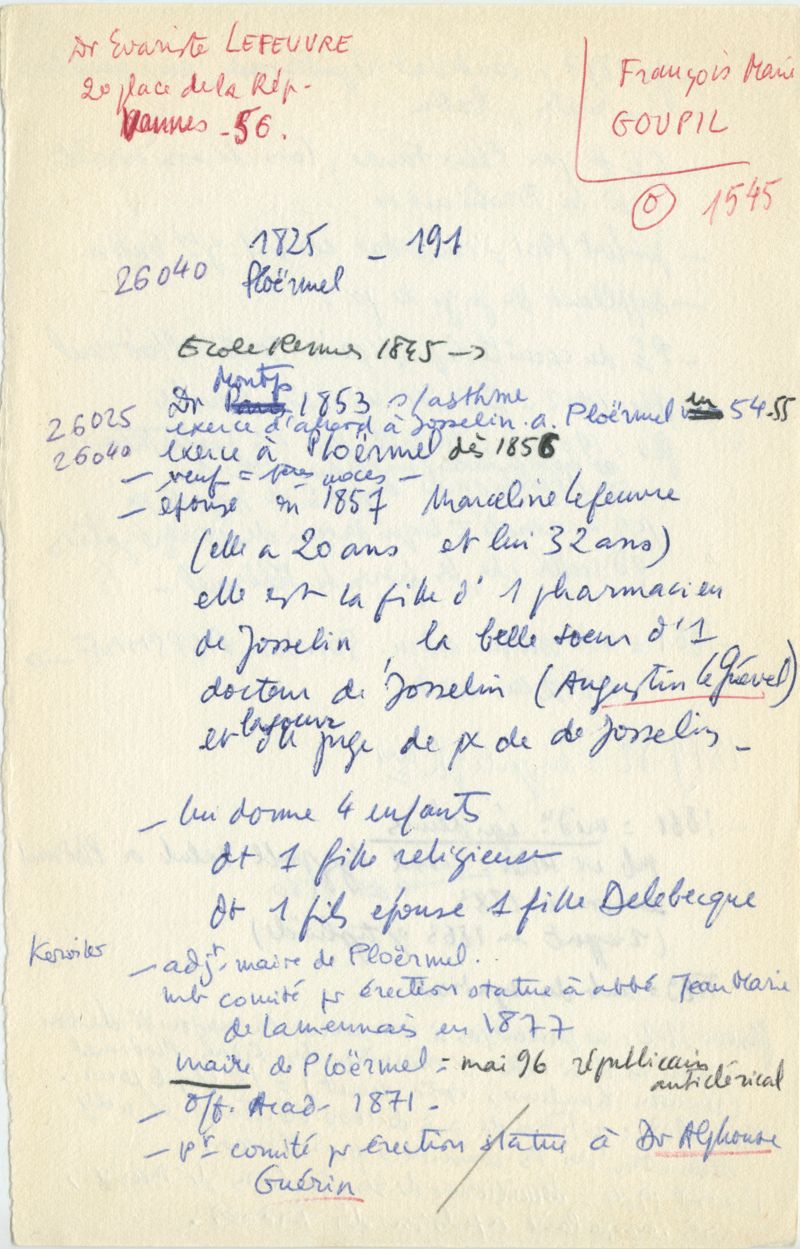 Dr Evariste LEFEUVRE
20 place de la Rép.
Vannes - 56.
François Marie
GOUPIL
1545
1825 - 191
26040 Ploërmel
Ecole Rennes 1845 →
Montp
Dr Paris 1853 s/asthme
26025 exerce d'abord à Josselin. a. Ploërmel en 54-55
26040 exerce à Ploërmel dès 1856
- veuf = 1ères noces -
- épouse en 1857 Marceline Lefeuvre
(elle a 20 ans et lui 32 ans)
elle est la fille d'1 pharmacien
de Josselin, la belle soeur d'1
docteur de Josselin (Augustin Le Grével)
la soeur
et du juge de px de de Josselin -
- lui donne 4 enfants
dt 1 fille religieuse
dt 1 fils épouse 1 fille Delebecque
Kerviler
- adjt. maire de Ploërmel..
mb comité pr érection statue à abbé Jean Marie
de Lamennais en 1877
maire de Ploërmel = mai 96 républicain
anticlérical
- Off. Acad - 1871 -
- pt comité pr érection statue à Dr Alphonse
Guérin